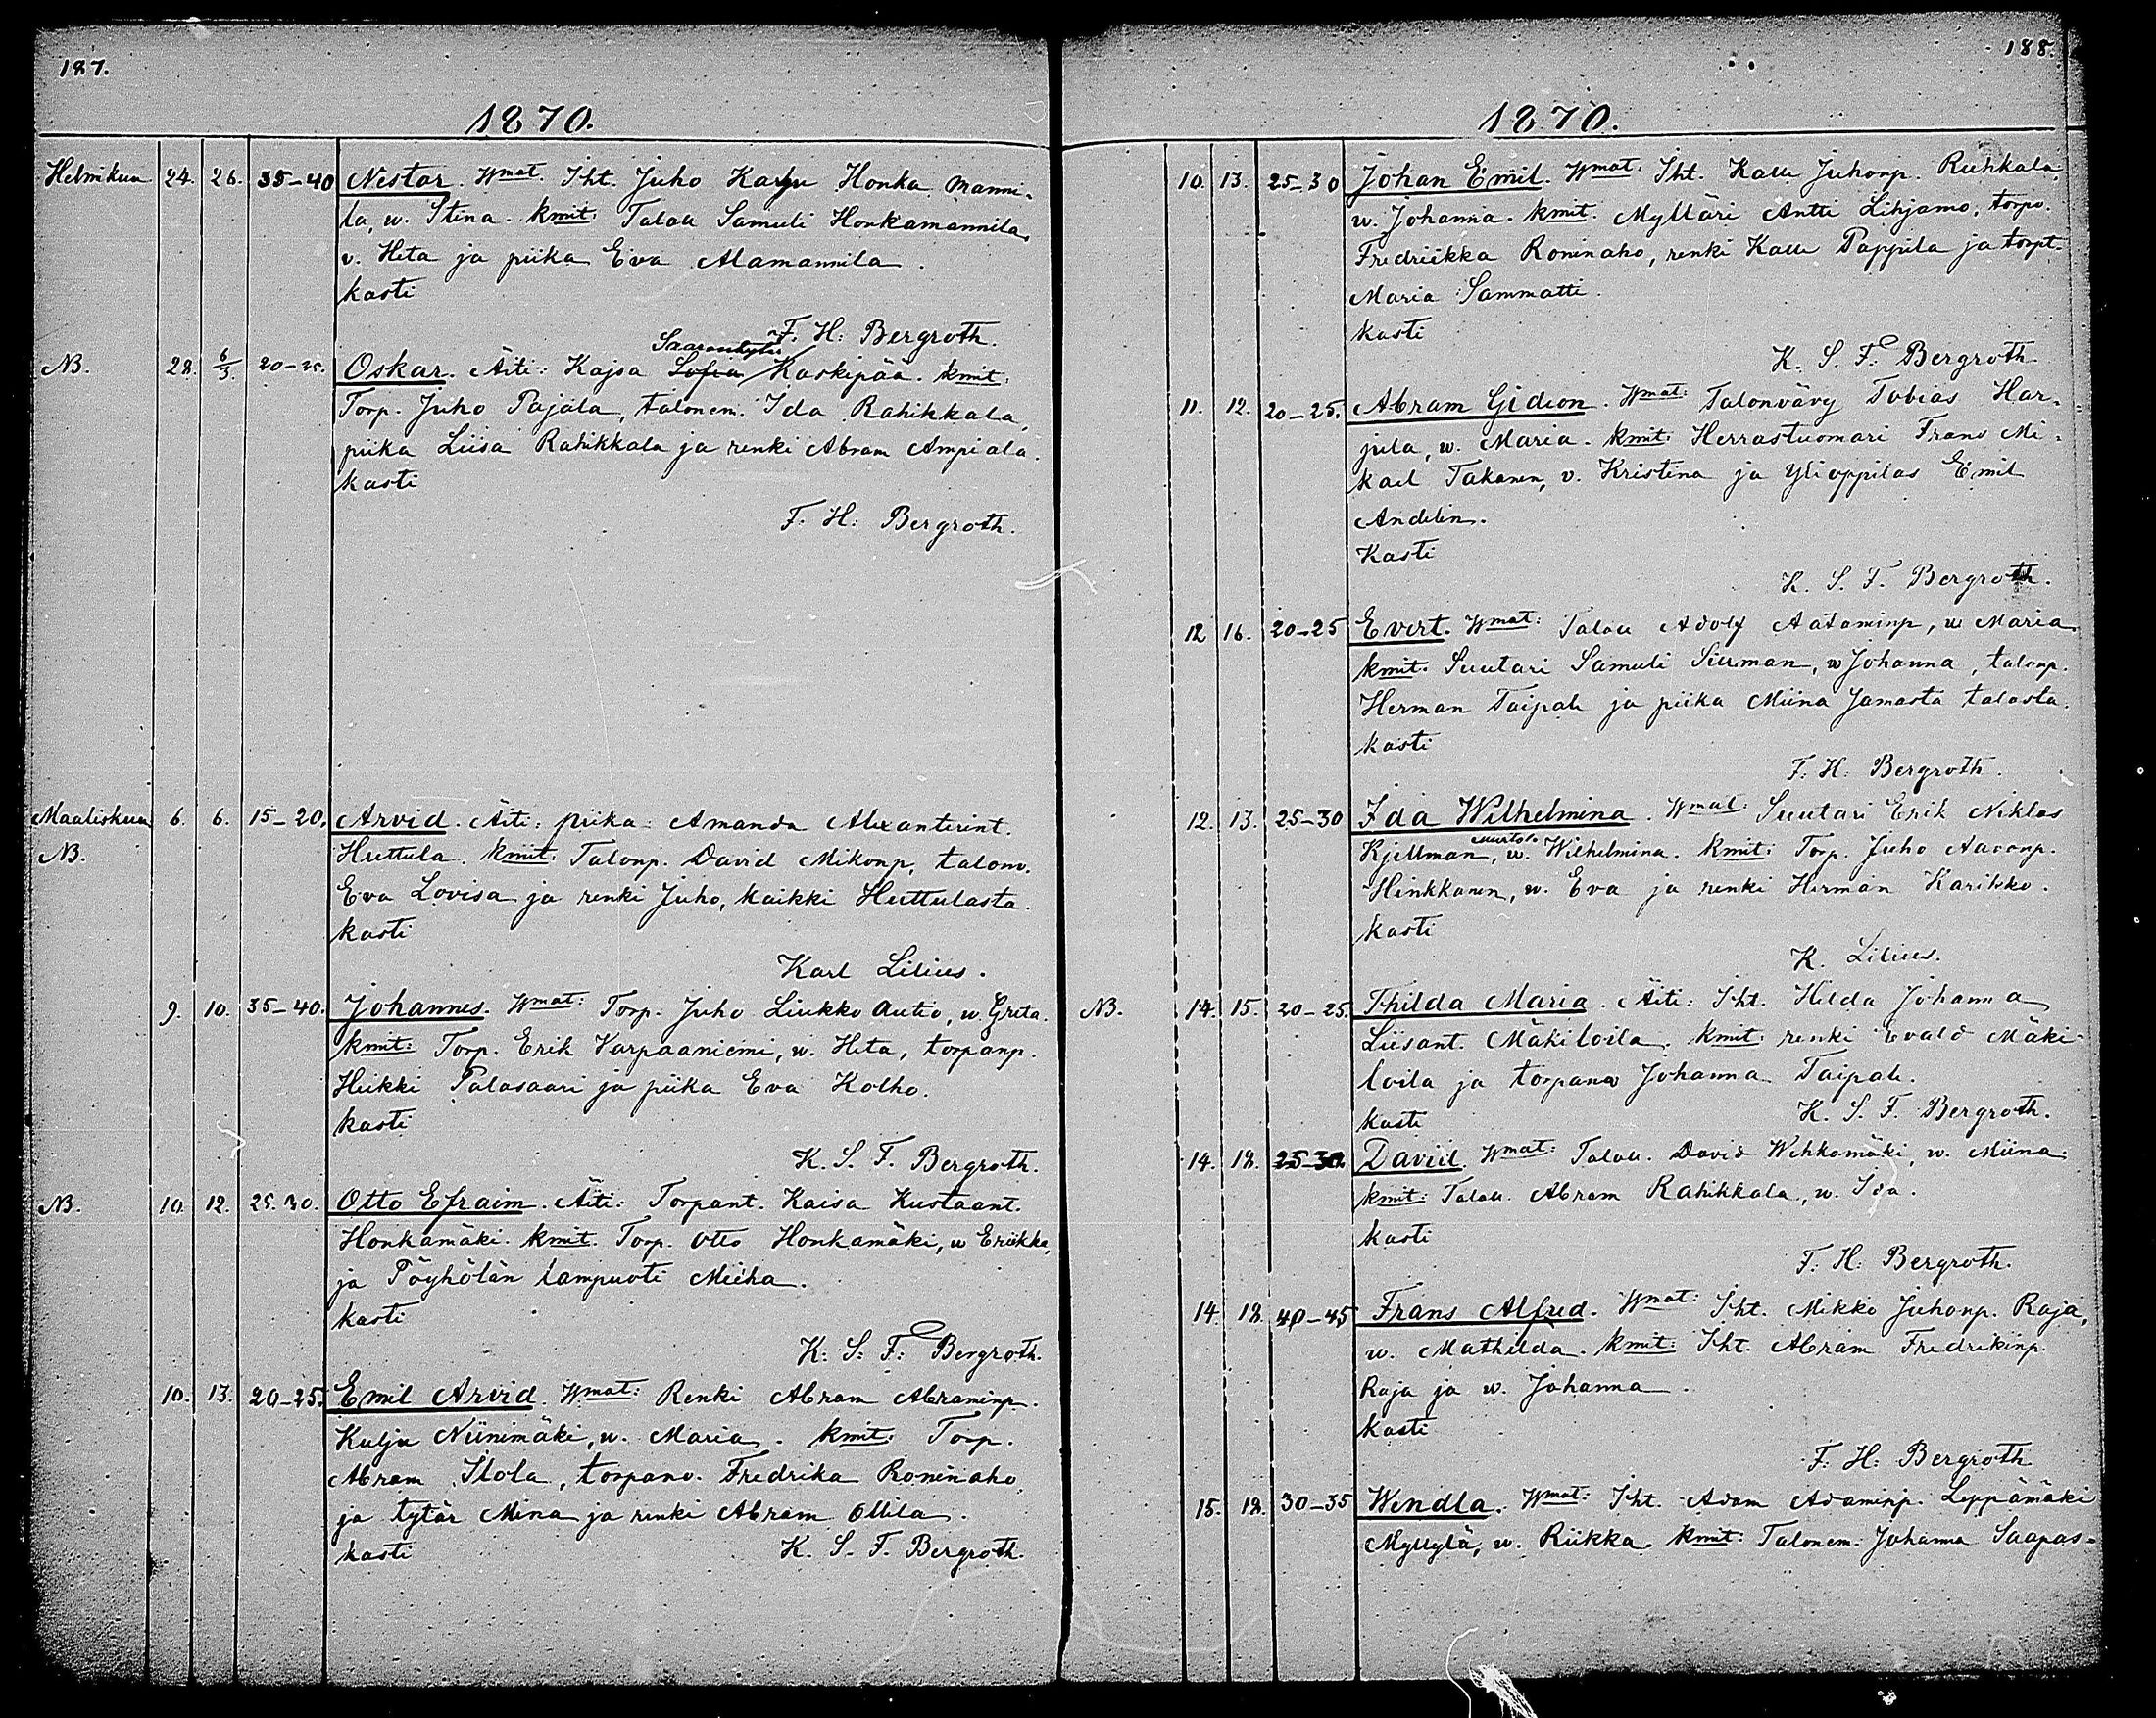 187.
1870.
Helmikuu 24. 26. 35-40 Nestor. Wmat. Iht. Juho Karju Honka manni-
la, w. Stina. kmit: Talou Samuli Honkamannila,
v. Heta ja piika Eva Alamannila.
kasti
F. H. Bergroth.
NB. 28. 6/3. 20-25. Oskar. Äiti: Kajsa Sofia Kaskipää. kmit:
Torp. Juho Pajala, talonem. Ida Rahikkala,
piika Liisa Rahikkala ja renki Abram Ampiala.
kasti
F. H. Bergroth.
Maaliskuu 6. 6. 15-20. Arvid. Äiti: piika Amanda Alexanterint.
NB. Huttula. kmit: Talonp. David Mikonp, talonv.
Eva Lovisa ja renki Juho, kaikki Huttulasta.
kasti
Karl Lilius.
9. 10. 35-40. Johannes. Wmat: Torp. Juho Liukko Autio, w. Greta.
kmit: Torp. Erik Varpaaniemi, w. Heta, torpanp.
Heikki Palasaari ja piika Eva Kolho.
kasti
K. S. F. Bergroth.
NB. 10. 12. 25. 30. Otto Efraim. Äiti: Torpant. Kaisa Kustaant.
Honkamäki. kmit. Torp. Otto Honkamäki, w Eriikka,
ja Pöyhölän lampuoti Miiha.
kasti
K. S. F. Bergroth.
10. 13. 20-25. Emil Arvid. Wmat: Renki Abram Abraminp.
Kulju Niinimäki, w. Maria. kmit: Torp.
Abram Ilola, torpanv. Fredrika Roninaho
ja tytär Mina ja renki Abram Ollila.
kasti K. S. F. Bergroth.
188.
1870.
10. 13. 25-30 Johan Emil. Wmat: Iht. Kalle Juhonp. Ruhkala,
w. Johanna. kmit. Mylläri Antti Lihjamo, torpv.
Fredriikka Roninaho, renki Kalle Pappila ja torpt.
Maria Sammatti.
kasti
K. S. F. Bergroth
11. 12. 20-25. Abram Gideon. Wmat: Talonvävy Tobias Har-
jula, w. Maria. kmit: Herrastuomari Frans Mi-
kael Takanen, v. Kristina ja Ylioppilas Emil
Andelin.
Kasti
K. S. F. Bergroth.
12 16. 20-25 Evert. Wmat: Talou Adolf Aataminp, w Maria
kmit. Suutari Samuli Siuman, w Johanna, talonp.
Herman Taipale ja piika Miina Jamasta talosta.
kasti
F. H. Bergroth.
12. 13. 25-30 Ida Wilhelmina. Wmat: Suutari Erik Niklas
Kjellman, w. Wilhelmina. kmit: Torp. Juho Aaronp.
Hinkkanen, w. Eva ja renki Herman Karikko.
kasti
K. Lilius.
NB. 14. 15. 20-25. Thilda Maria. Äiti: Iht. Hilda Johanna
Liisant. Mäkiloila. kmit: renki Evald Mäki-
loila ja torpanv Johanna Taipale.
kasti K. S. F. Bergroth.
14. 18. 25-30 Daviid. Wmat: Talou. David Wehkomäki, w. Miina.
kmit: Talou. Abram Rahikkala, w. Ida.
kasti
F. H. Bergroth.
14. 18. 40-45 Frans Alfred. Wmat: Iht. Mikko Juhonp. Raja,
w. Mathilda. kmit: Iht. Abram Fredrikinp.
Raja ja w. Johanna.
kasti
F. H. Bergroth
15. 18. 30-35 Wendla. Wmat: Iht. Adam Adaminp. Leppämäki
Myllylä, w. Riikka. kmit: Talonem. Johanna Saapas-